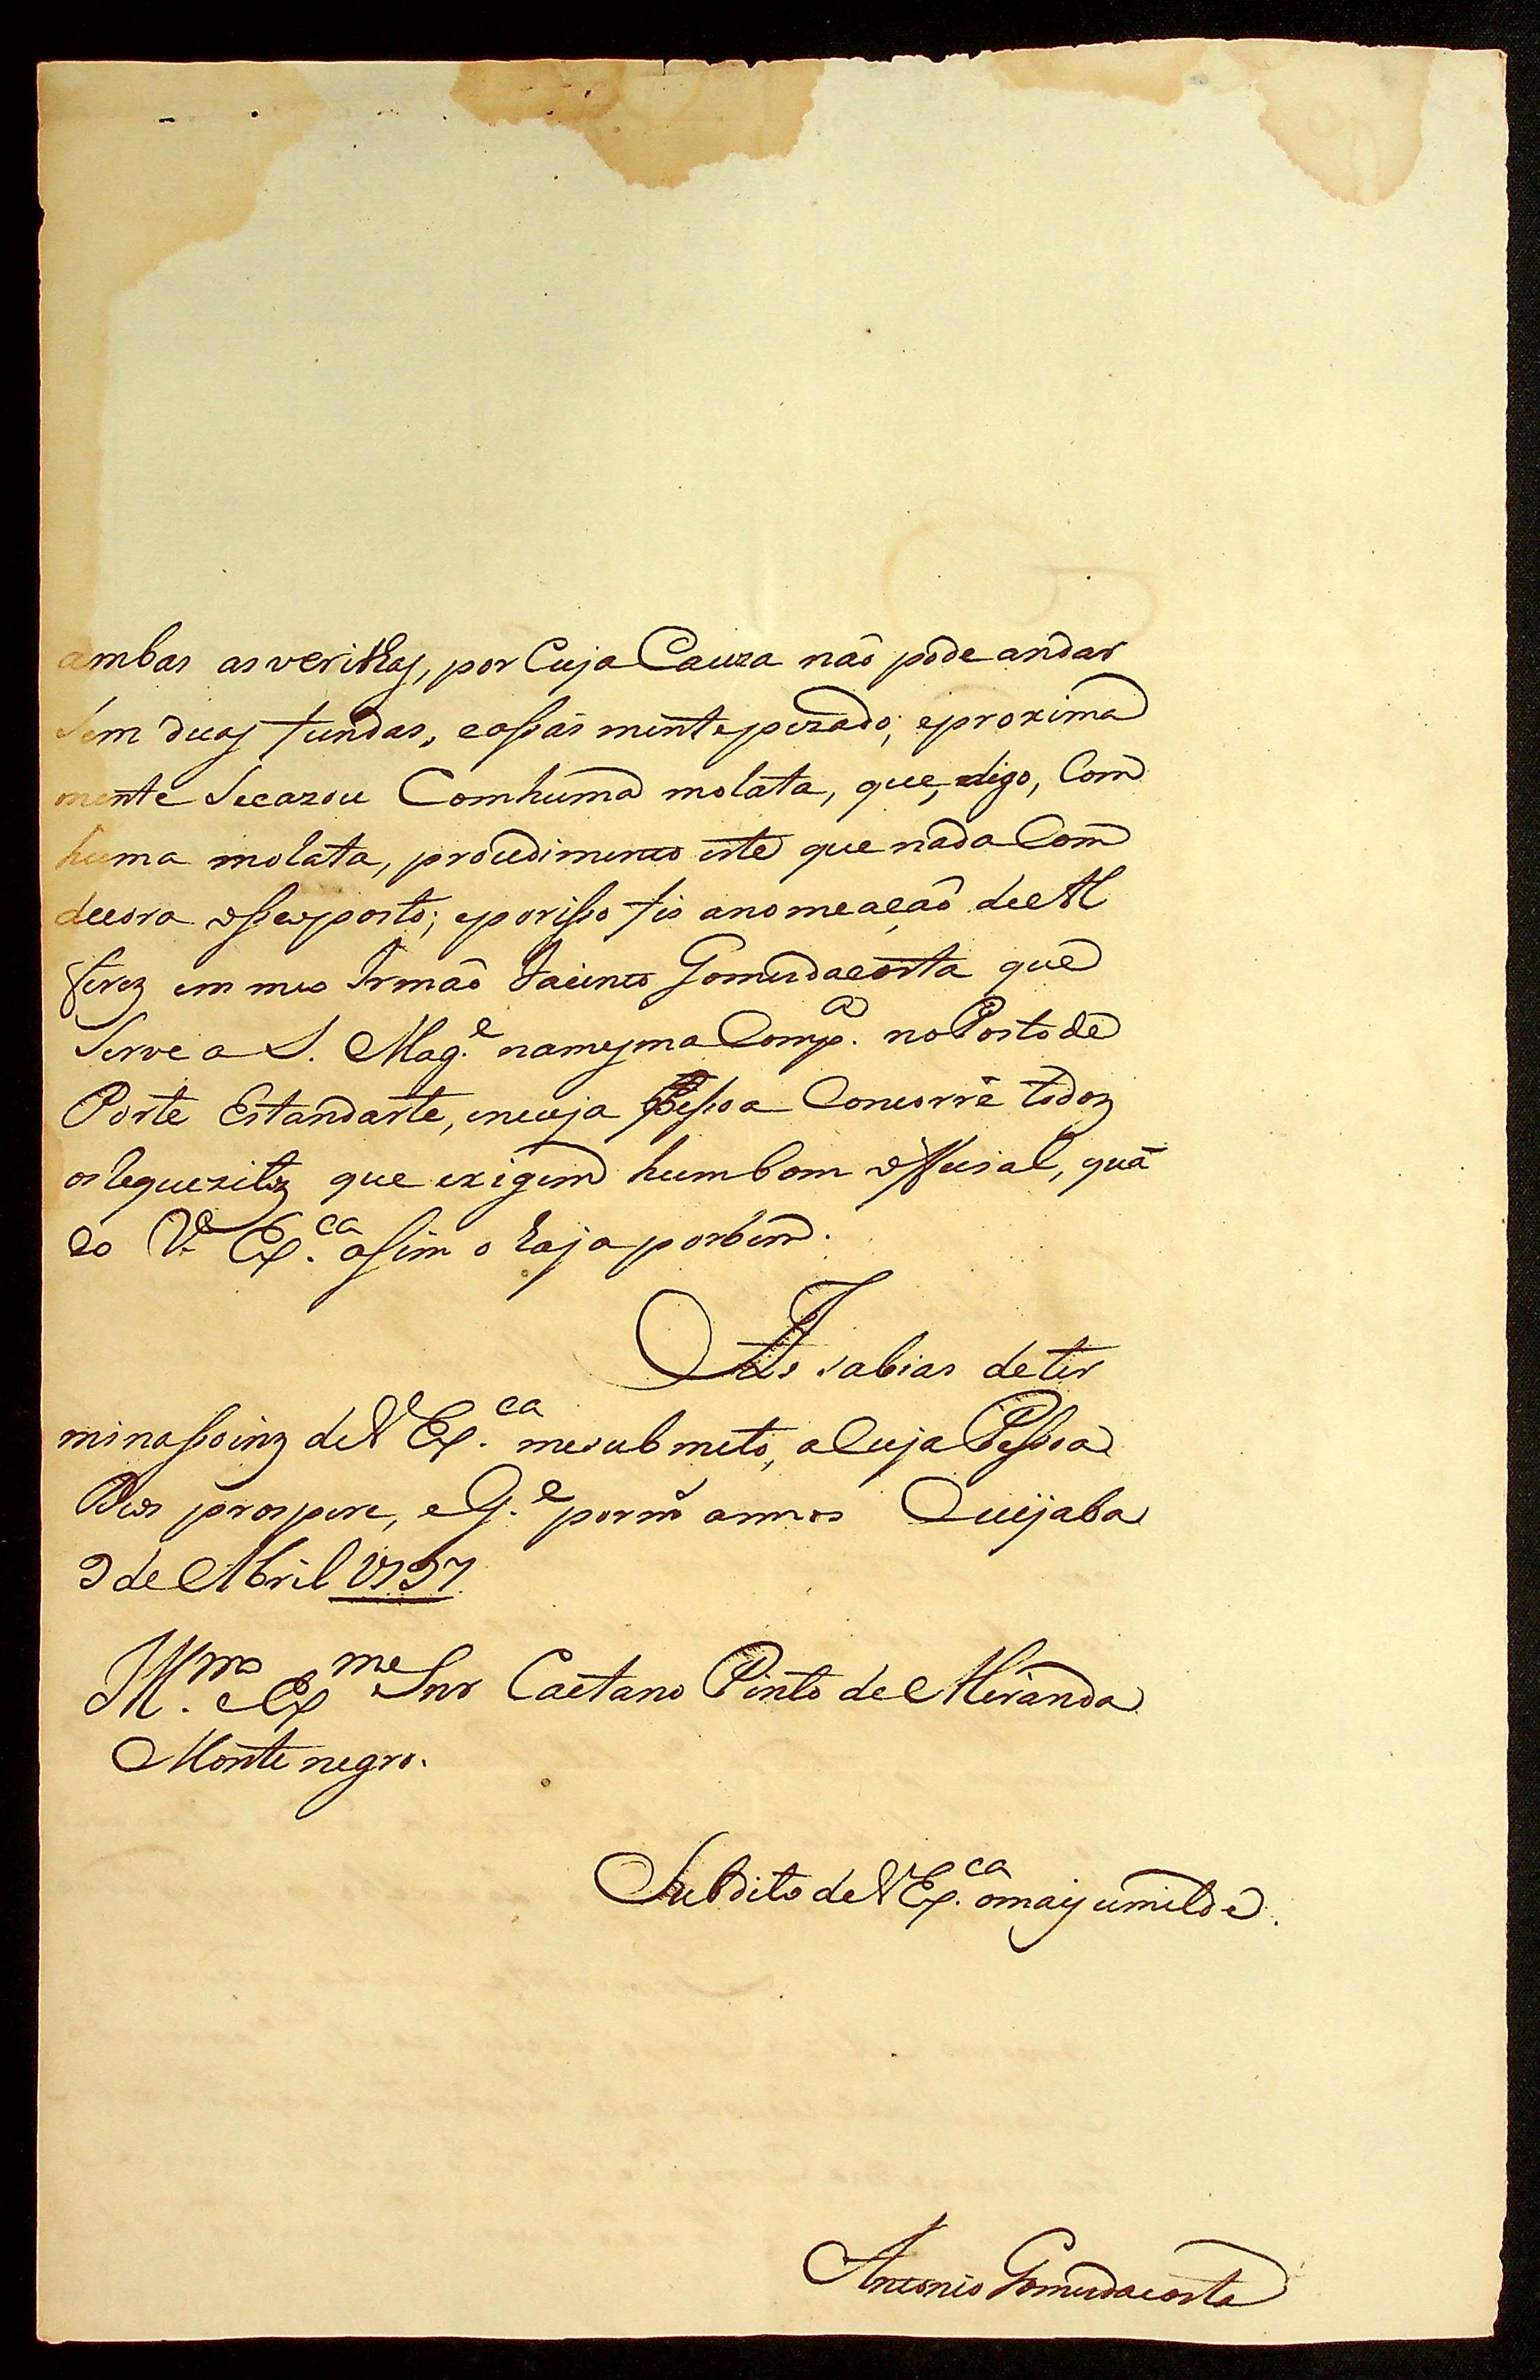 ambas as verilhas, por Cuja Cauza não pode andar
Sem duas fundas, eassás mente pezado; eproxima
mente Secazou Comhuma molata, que, digo, Com
huma molata, procedimento este que nada Com
decora esseposto; eporisso fis anomeação deAl
feres em meo Irmão Jacinto Gomesdacosta que
Serve a S. Mag.e namesma Comp.a no Posto de
Porte Estandarte, encuja Pessoa Concorre todoz
osRequezitoz que exigem humbom official, quã
do V. Ex.ca assim o haja porbem.
As sabias deter
minassoinz deV Ex.ca mesubmeto, aCuja Pessoa
Deos prospere, eG.e porm.s annos Cuijaba
9 de Abril 1797
Ill.mo eEx.mo Snr Caetano Pinto deMiranda
Montenegro.
Subdito deV Ex.ca omaij umilde.
Antonio Gomesdacosta